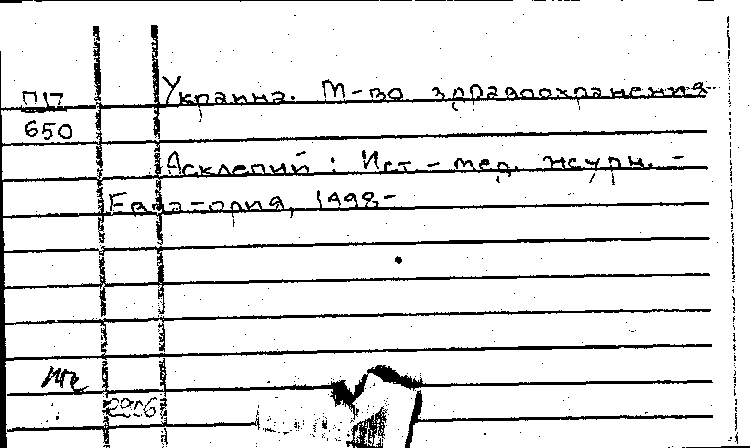 П17
Украина. М-во здравоохранения
650
Асклепий : Ист-мед. журн. -
Евпатория, 1998-
2906